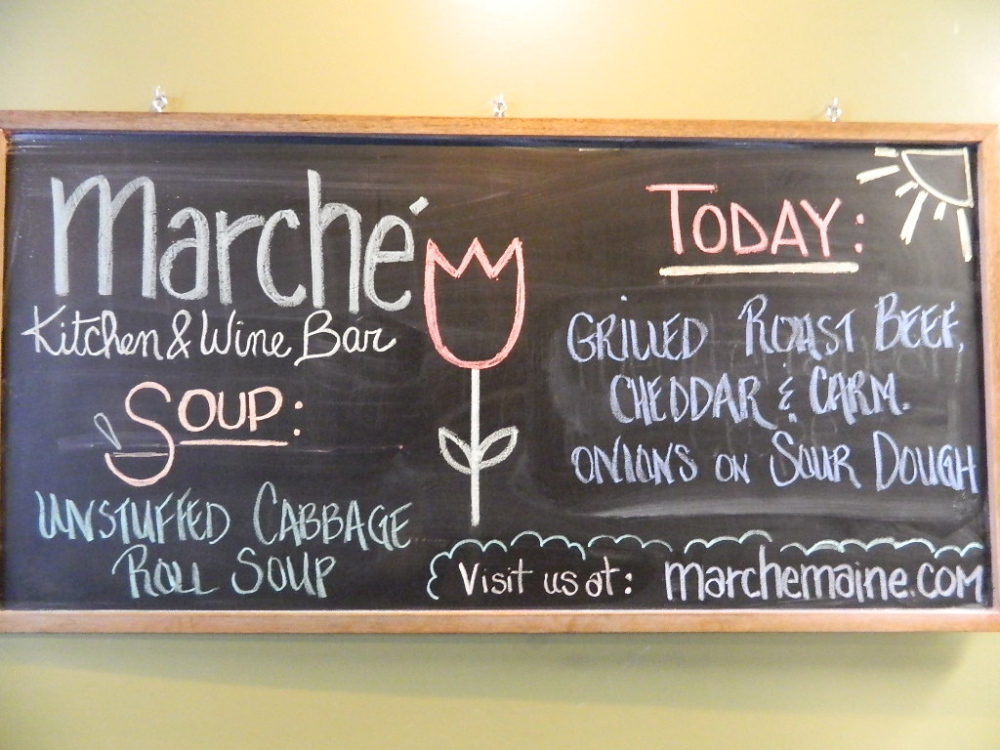 Marché
Kitchen & Wine Bar
SOUP:
UNSTUFFED CABBAGE
ROLL SOUP
TODAY:
GRILLED ROAST BEEF,
CHEDDAR & CARM.
ONIONS ON SOUR DOUGH
Visit us at: marchemaine.com